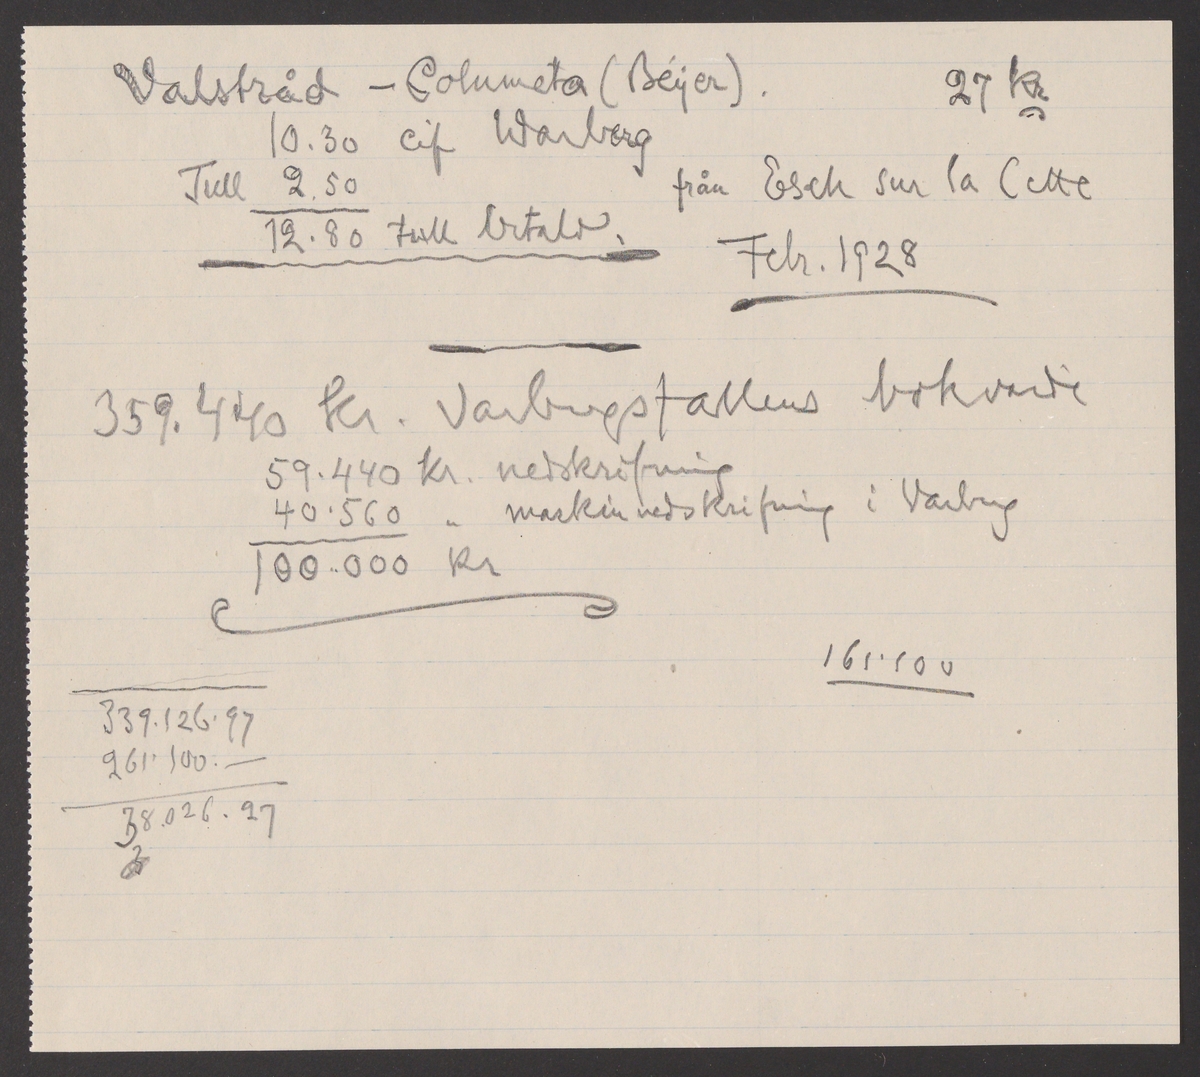 Valstråd – Columeta (Béijer). 27 kr
10.30 cif Warberg
Tull 2.50 från Esch sur la Cette
12.80 tull betald.
Febr. 1928
359.440 kr. Varbergsfallens bokvärde
59.440 kr. nedskrifning
40.560 " maskinnedskrifning i Varberg
100.000 kr
161.100
339.126.97
261.100.—
38.026.27